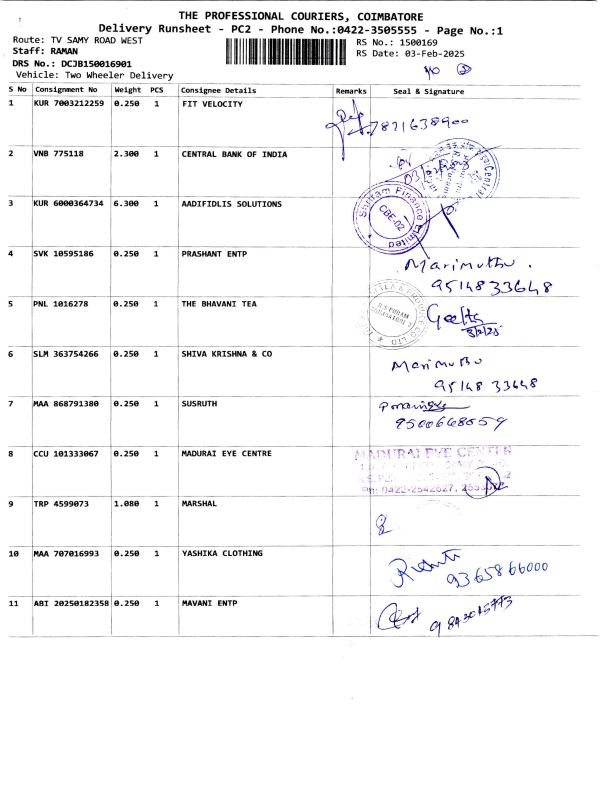 THE PROFESSIONAL COURIERS, COIMBATORE
Delivery Runsheet - PC2 - Phone No.:0422-3505555 - Page No.:1
Route: TV SAMY ROAD WEST
RS No.: 1500169
Staff: RAMAN
RS Date: 03-Feb-2025
DRS No.: DCJB150016901
Vehicle: Two Wheeler Delivery
S No Consignment No Weight PCS Consignee Details Remarks Seal & Signature
1 KUR 7003212259 0.250 1 FIT VELOCITY
7871638900
2 VNB 775118 2.300 1 CENTRAL BANK OF INDIA
Central
3 KUR 6000364734 6.300 1 AADIFIDLIS SOLUTIONS
Shriram Finance Limited
CBE-02
4 SVK 10595186 0.250 1 PRASHANT ENTP
Marimuthu.
95148 33648
5 PNL 1016278 0.250 1 THE BHAVANI TEA
R S PURAM
Geetha
3/2/25
6 SLM 363754266 0.250 1 SHIVA KRISHNA & CO
Marimuthu
95148 33648
7 MAA 868791380 0.250 1 SUSRUTH
9500668059
8 CCU 101333067 0.250 1 MADURAI EYE CENTRE
MADURAI EYE CENTRE
Ph: 0422-2542627,
9 TRP 4599073 1.080 1 MARSHAL
10 MAA 707016993 0.250 1 YASHIKA CLOTHING
9365866000
11 ABI 20250182358 0.250 1 MAVANI ENTP